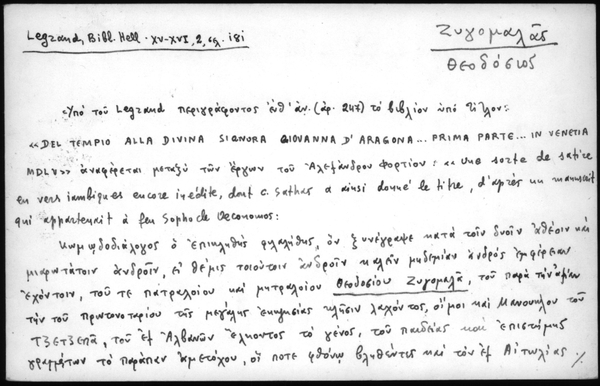 Legrand, Bibl. Hell. XV-XVI, 2, σελ. 181
Ζυγομαλᾶς
Θεοδόσιος
«Ὑπὸ τοῦ Legrand περιγράφοντος ἐνθ' ἀν. (ἀρ. 247) τὸ βιβλίον ὑπὸ τίτλον:
«DEL TEMPIO ALLA DIVINA SIGNORA GIOVANNA D'ARAGONA... PRIMA PARTE... IN VENETIA
MDLV» ἀναφέρεται μεταξὺ τῶν ἔργων τοῦ Ἀλεξάνδρου Φορτίου: «une sorte de satire
en vers iambiques encore inédite, dont C. Sathas a ainsi donné le titre, d'après un manuscrit
qui appartenait à feu Sophocle Oeconomos:
Κωμῳδοδιάλογος ὁ ἐπικληθεὶς φιλαλήθης, ὃν ξυνέγραψε κατὰ τοῖν δυοῖν ἀθέοιν καὶ
μιαρωτάτοιν ἀνδροῖν, εἰ θέμις τοιούτοιν ἀνδροῖν καλεῖν μηδεμίαν ἀνδρὸς ἐμφέρειαν
ἐχόντοιν, τοῦ τε πατραλοίου καὶ μητραλοίου Θεοδοσίου Ζυγομαλᾶ, τοῦ παρὰ τὴν ἀξίαν
τὴν τοῦ πρωτονοταρίου τῆς μεγάλης ἐκκλησίας κλῆσιν λαχόντος, οἴμοι καὶ Μανουήλου τοῦ
Τζετζεπᾶ, τοῦ ἐξ Ἀλβανῶν ἕλκοντος τὸ γένος, τοῦ παιδείας καὶ ἐπιστήμης
γραμμάτων τὸ παράπαν ἀμετόχου, οἵ ποτε φθόνῳ βληθέντες καὶ τὸν ἐξ Αἰτωλίας ./.